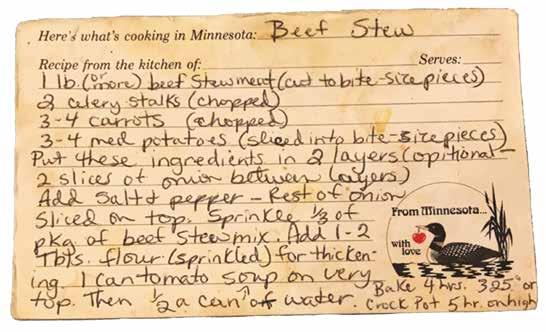 Here's what's cooking in Minnesota: Beef Stew
Recipe from the kitchen of: Serves:
1 lb. (or more) beef stewmeat (cut to bite-size pieces)
2 celery stalks (chopped)
3-4 carrots (chopped)
3-4 med potatoes (sliced into bite-size pieces)
Put these ingredients in 2 layers (optional-
2 slices of onion between layers)
Add salt & pepper - Rest of onion
sliced on top. Sprinkle 1/3 of
pkg of beef stew mix. Add 1-2
Tbls. flour (sprinkled) for thicken-
ing. 1 can tomato soup on very
top. Then 1/2 a can of water.
From Minnesota...
with
love
Bake 4 hrs. 325° or
Crock Pot 5 hr. on high